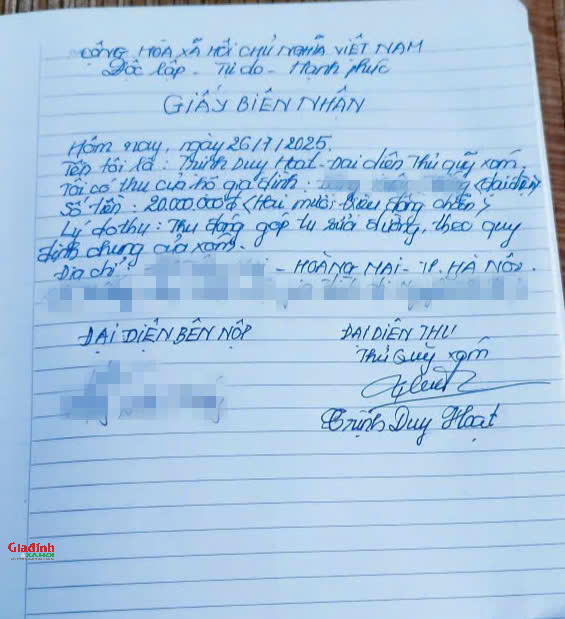 CỘNG HÒA XÃ HỘI CHỦ NGHĨA VIỆT NAM
Độc lập - Tự do - Hạnh phúc
GIẤY BIÊN NHẬN
Hôm nay, ngày 26/7/2025.
Tên tôi là: Trịnh Duy Hoạt - Đại diện Thủ quỹ xóm.
Tôi có thu của hộ gia đình: (đại diện)
Số tiền: 20.000.000đ (Hai mươi triệu đồng chẵn)
Lý do thu: Thu đóng góp tu sửa đường, theo quy
định chung của xóm.
Địa chỉ: - HOÀNG MAI - TP. HÀ NỘI.
ĐẠI DIỆN BÊN NỘP
ĐẠI DIỆN THU
Thủ Quỹ xóm
Trịnh Duy Hoạt
Giađình
XÃ HỘI